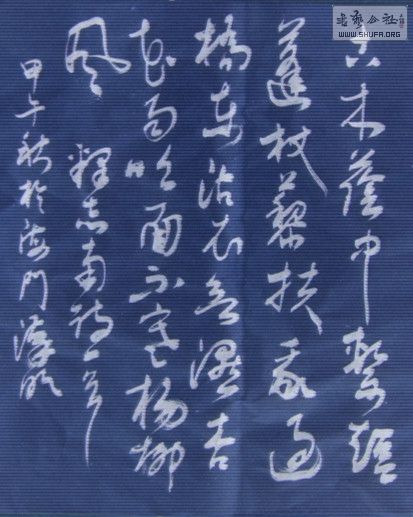 古木蔭中繫短
蓬杖藜扶我過
橋東沾衣欲濕杏
花雨吹面不寒楊柳
風 釋志南詩一首
甲午秋於海門
WWW.SHUFA.ORG